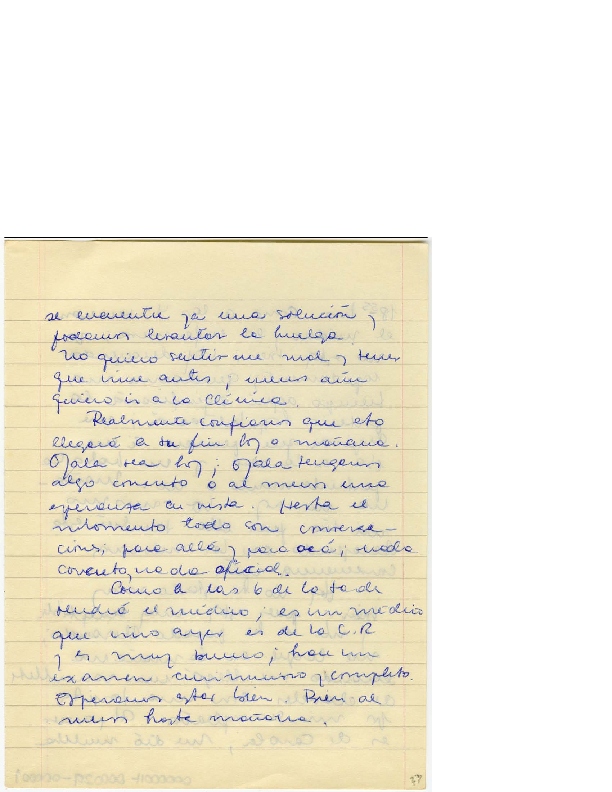 se encuentre ya una solución y
podamos levantar la huelga.
No quiero sentirme mal y tener
que irme antes; menos aún
quiero ir a la clínica.
Realmente confiamos que esto
llegará a su fin hoy o mañana.
Ojala sea hoy; ojala tengamos
algo concreto o al menos una
esperanza en vista. Hasta el
momento todo son conversa-
ciones, para allá y para acá; nada
concreto, nada oficial.
Como a las 6 de la tarde
vendrá el médico; es un médico
que vino ayer es de la C.R
y es muy bueno; hace un
examen minucioso y completo.
Esperamos estar bien. Bien al
menos hasta mañana.